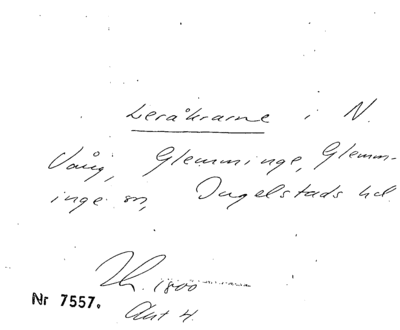 Leråkrarne i N.
Vång, Glemminge, Glemm-
inge sn, Ingelstads hd
1800
Nr 7557.
Akt 4.